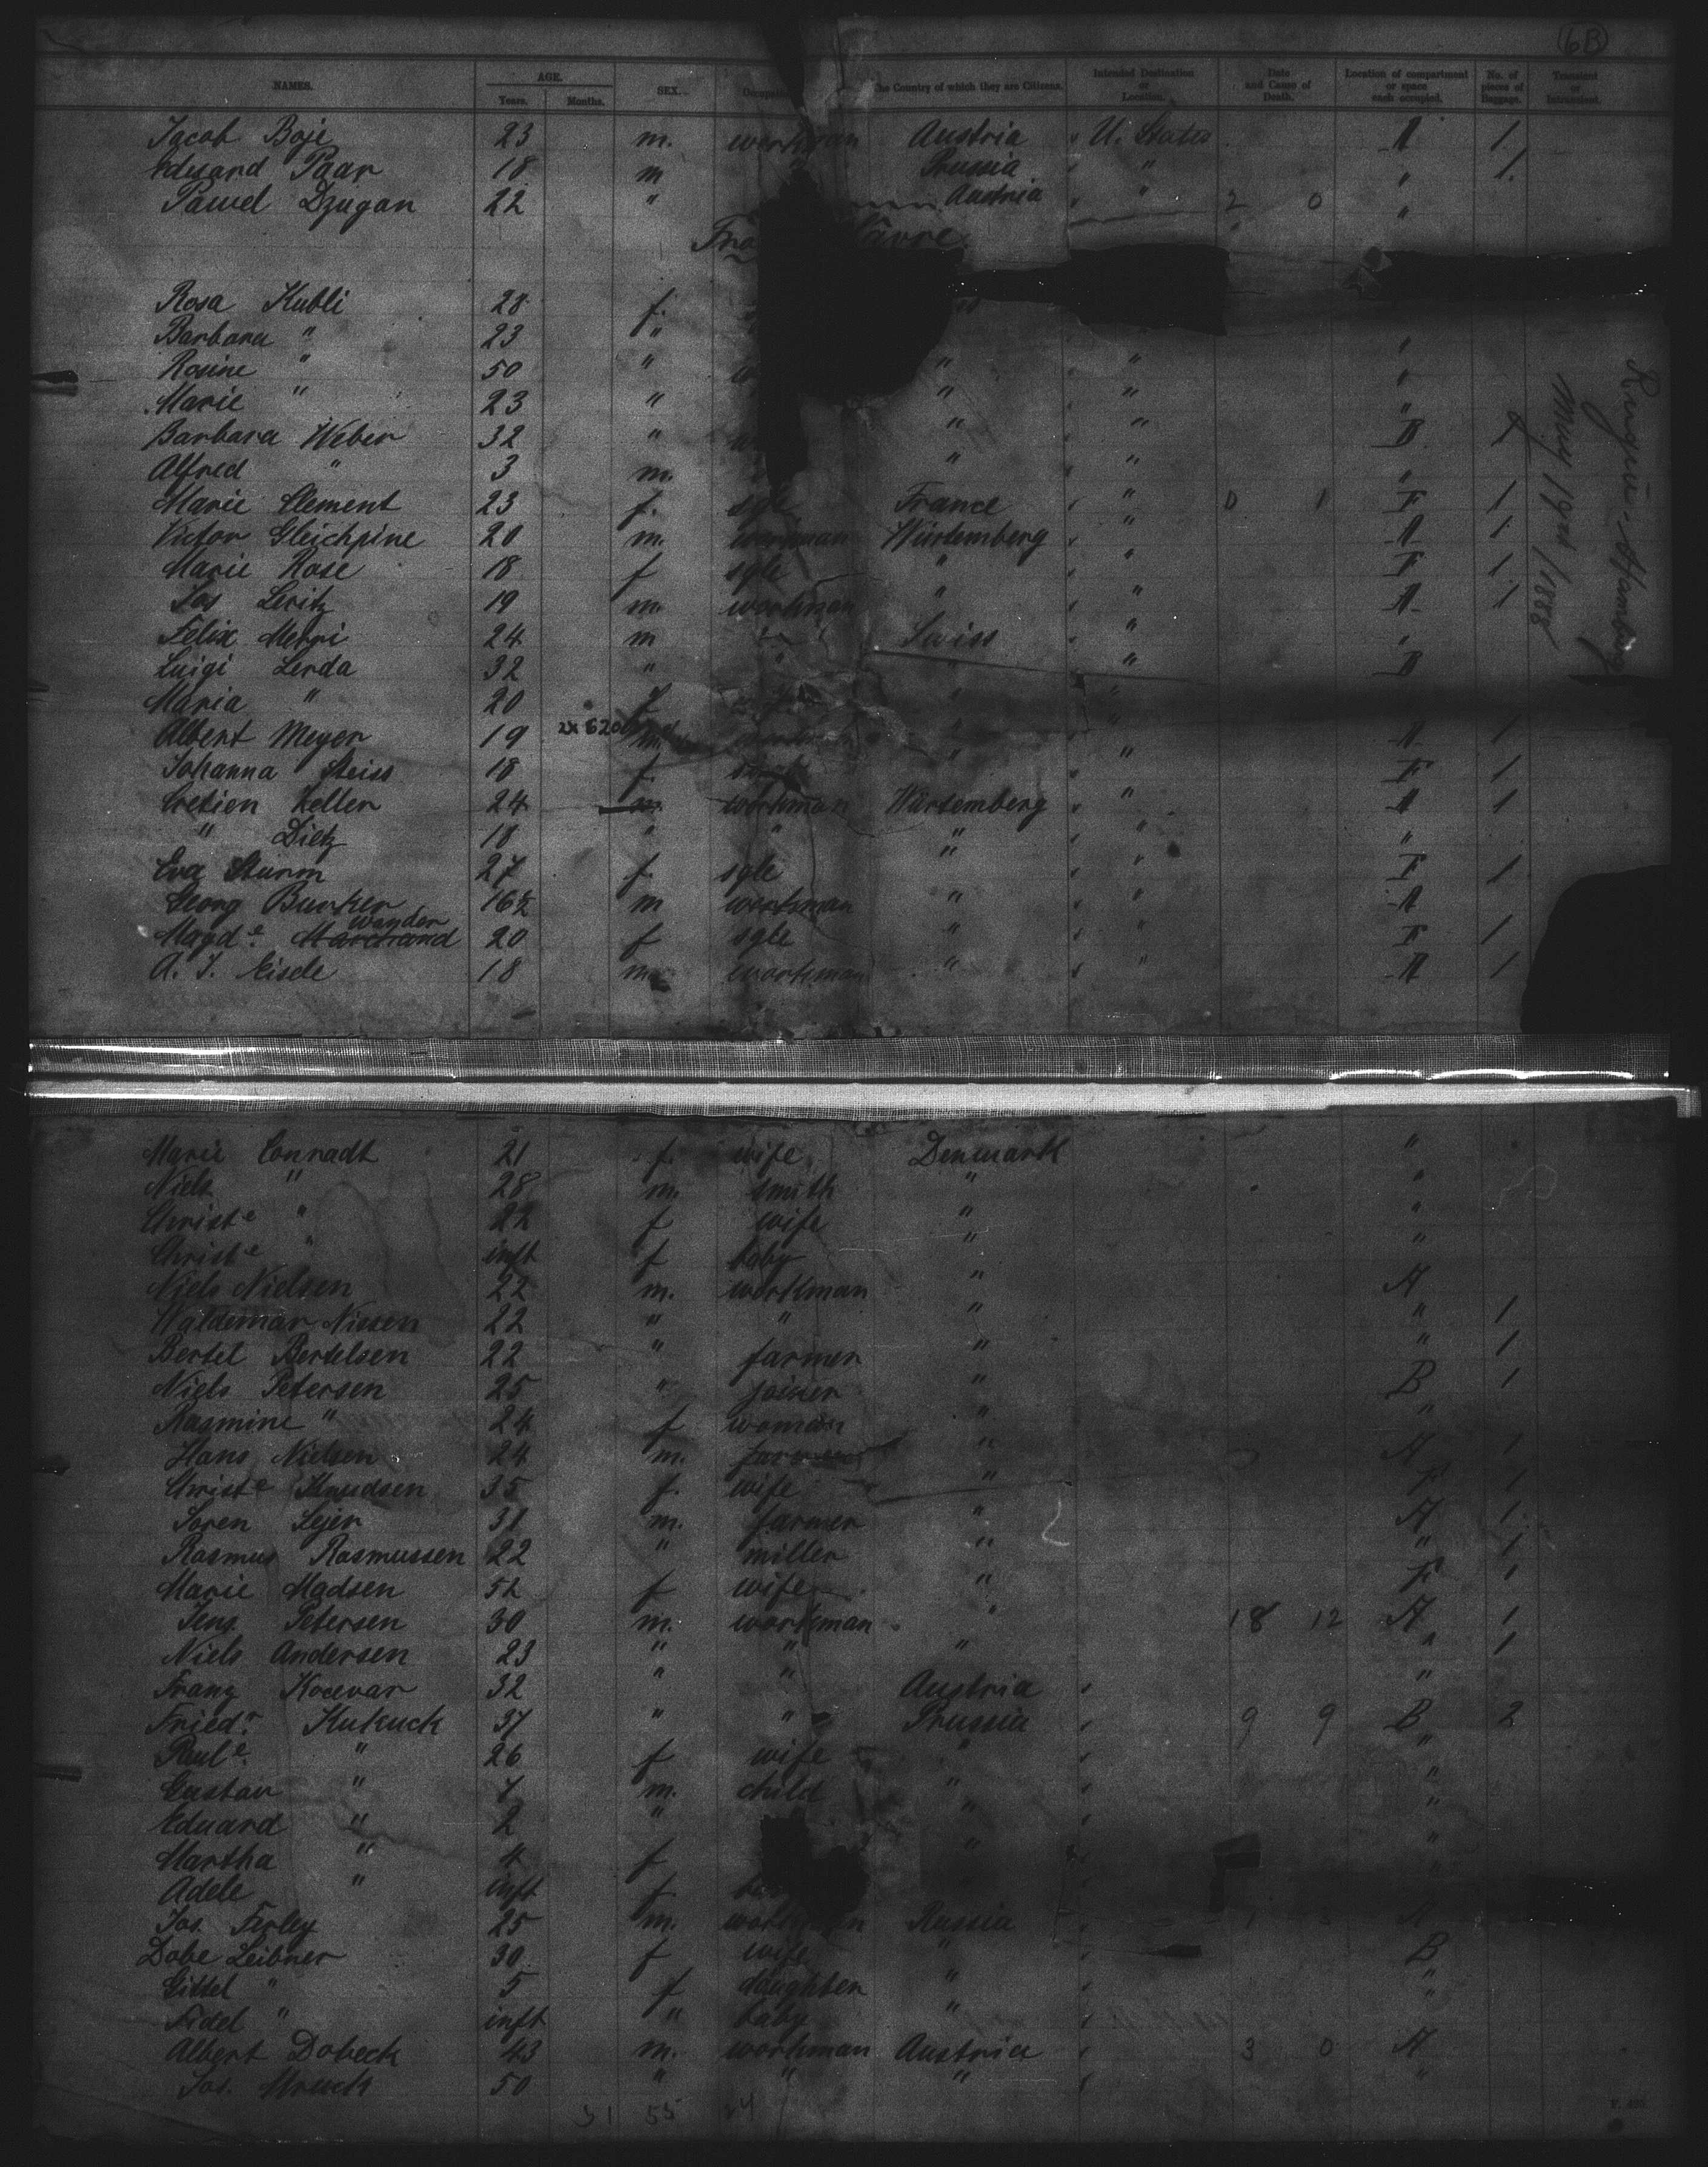 6B
NAMES. AGE. Years. Months. SEX. The Country of which they are Citizens. Intended Destination or Location. Date and Cause of Death. Location of compartment or space each occupied. No. of pieces of Baggage. Transient or Intransient.
Jacob Boje 23 m. workman Austria U. States A 1
Eduard Paar 18 m Prussia " " 1.
Pawel Dzugan 22 " Austria " 2 0 "
Rosa Kubli 28 f.
Barbara " 23 " "
Rosine " 50 " " " "
Marie " 23 " " " "
Barbara Weber 32 " " " B
Alfred " 3 m. " " "
Marie Clement 23 f. sgle France " 0 1 F 1
Victor Gleichpine 20 m. workman Würtemberg " A 1
Marie Rose 18 f sgle " " F 1
Jos Leritz 19 m. workman " " A 1
Felix Merri 24 m " Swiss " "
Luigi Lerda 32 " " " " B
Maria " 20 f " "
Albert Meyer 19 m. " " A 1
Johanna Steiss 18 f. " " F 1
Cretien Keller 24 m. workman Würtemberg " A 1
" Dietz 18 " " " " "
Eva Sturm 27 f. sgle " F 1
Georg Bunker 16½ m workman " " A
Magd.e Wander 20 f sgle " " F 1
A. J. Eisele 18 m. workman " " A 1
May 19th/1888
Marie Conradt 21 f. wife Denmark "
Niels " 28 m. smith " "
Christe " 22 f wife " "
Christe " inft f baby "
Niels Nielsen 22 m. workman " A
Waldemar Nissen 22 " " " " 1
Bertel Bertelsen 22 " farmer " " 1
Niels Petersen 25 " joiner " B 1
Rasmine " 24 f woman " "
Hans Nielsen 24 m. farmer " A 1
Christe Knudsen 35 f. wife " F 1
Soren Lejer 31 m. farmer " A 1
Rasmus Rasmussen 22 " miller " " 1
Marie Madsen 52 f wife " F 1
Jens Petersen 30 m. workman " 18 12 A 1
Niels Andersen 23 " " " " 1
Franz Kocevar 32 " " Austria "
Fried.r Kukuck 37 " " Prussia 9 9 B 2
Paul.e " 26 f wife " "
Gustav " 7 m. child " "
Eduard " 2 " " "
Martha " 4 f "
Adele " inft f.
Jos. Ferley 25 m. workman Russia A
Dobe Leibner 30 f wife " B
Gittel " 5 f daughter " "
Fidel " inft " baby "
Albert Dobeck 43 m. workman Austria 3 0 A
Jos. 50 " " " "
31 55 24